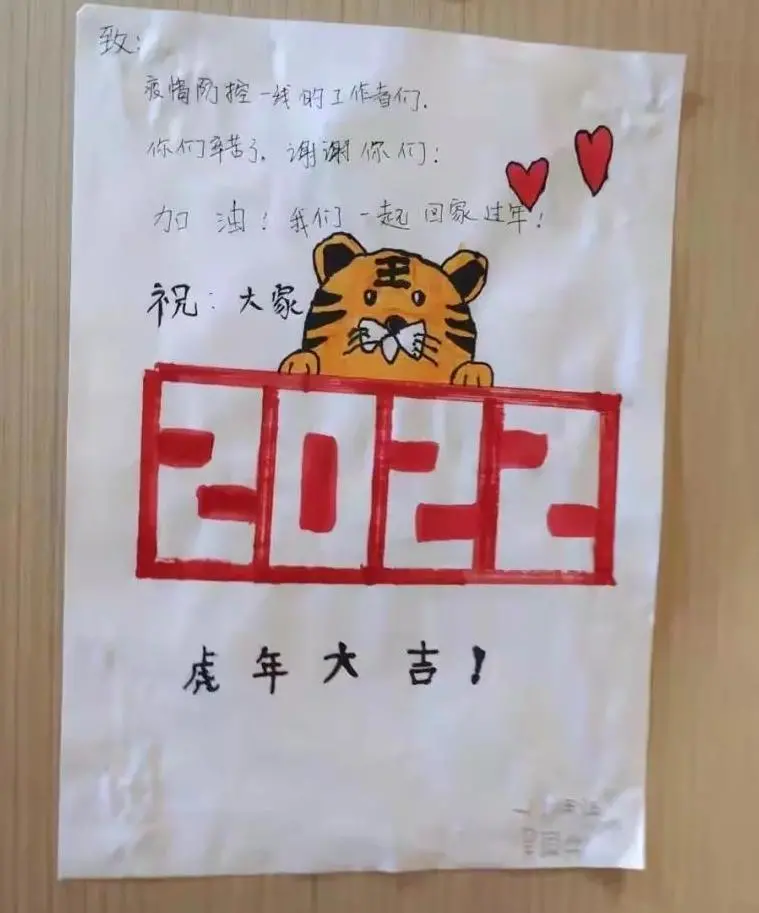 致:
疫情防控一线的工作者们.
你们辛苦了.谢谢你们:
加油!我们一起回家过年!
王
祝:大家
2022
虎年大吉!